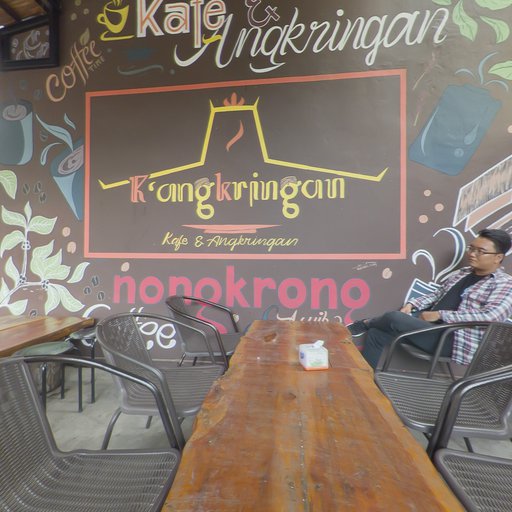 Kafe &
Angkringan
coffee
K'angkringan
Kafe & Angkringan
nongkrong